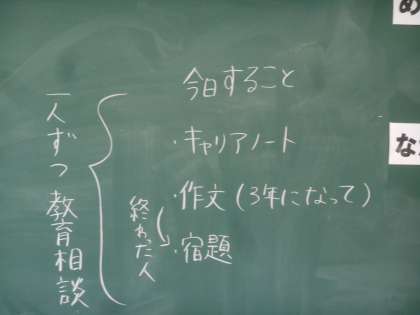 今日すること
・キャリアノート
・作文(3年になって)
・宿題
終わった人
一人ずつ教育相談
め
な